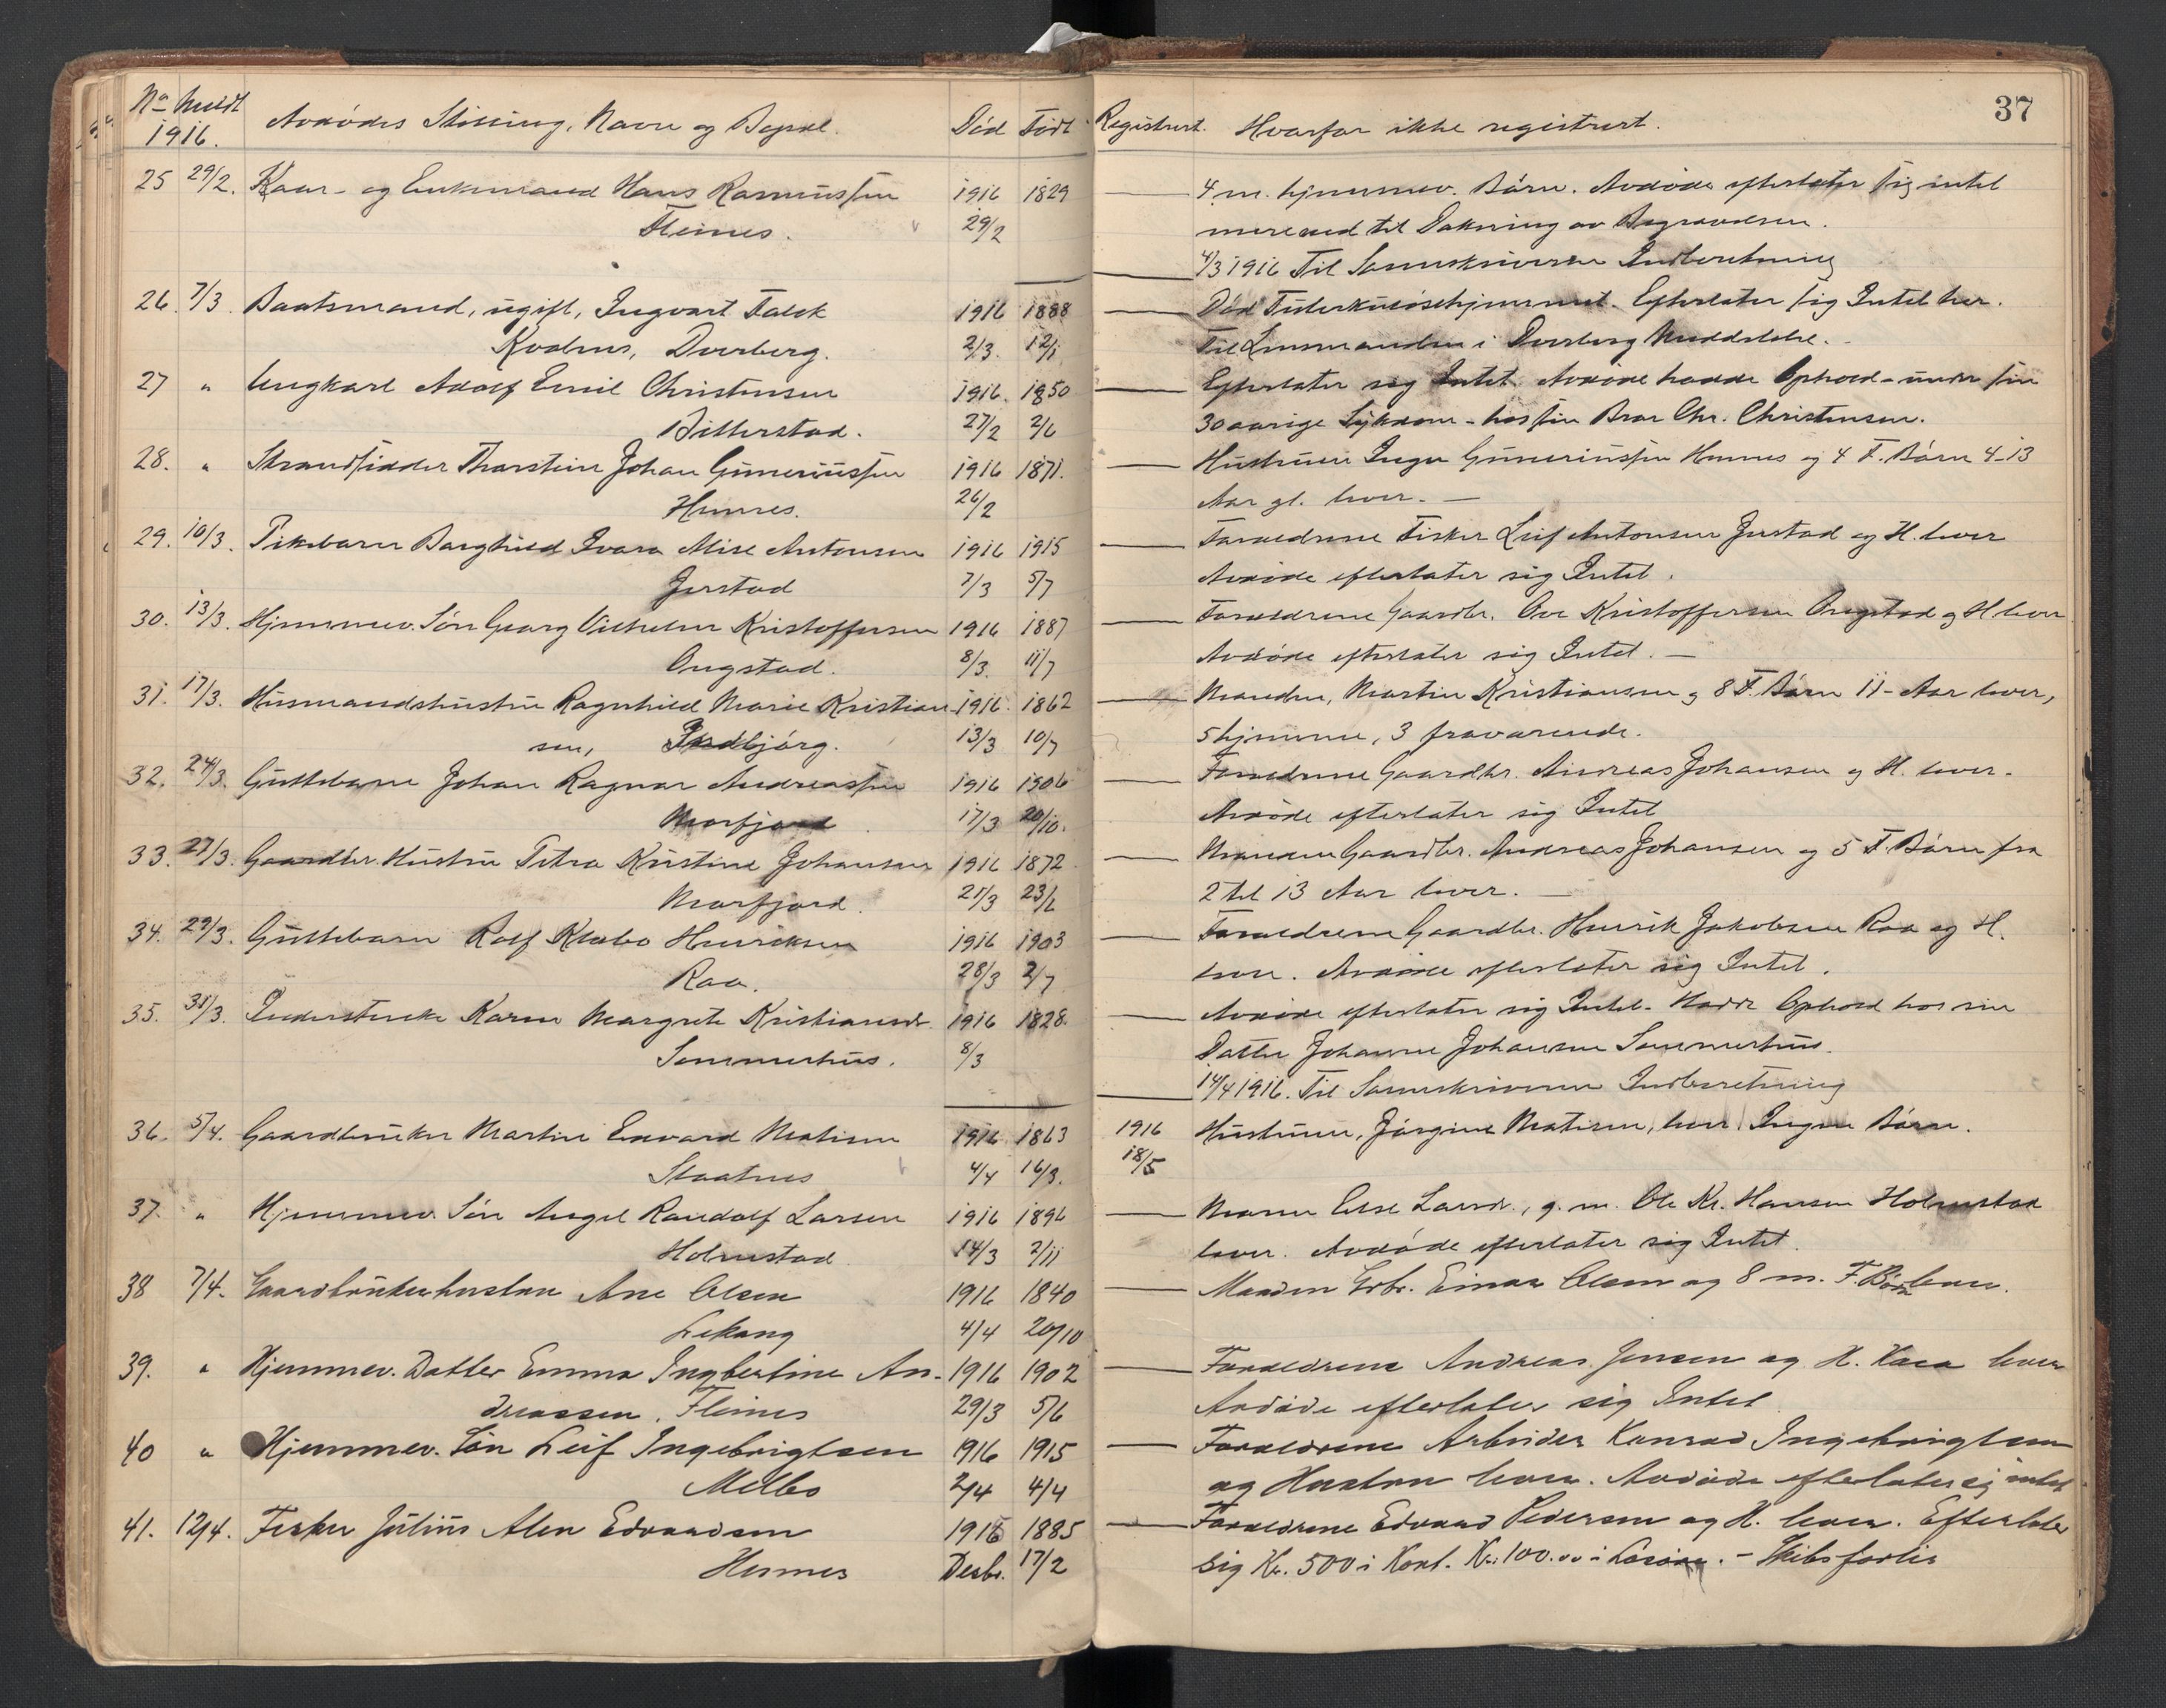 37
No Meldt 1916. Avdødes Stilling, Navn og Bopæl. Død Født Registrert. Hvorfor ikke registrert.
25 29/2. Kaar- og Enkemand Hans Rasmussen 1916 1829 — 4 m. hjemmev. Børn. Avdøde efterlater sig intet
Fleines. 29/2 mere end til Dækning av Begravelsen.
4/3 1916 Til Sorenskriveren Indberetning
26. 7/3. Baatsmand, ugift, Ingvart Falck 1916 1888 — Død Tuberkulosehjemmet. Efterlater sig Intet her.
Kvalnes, Dverberg. 2/3. 12/1 Til Lensmanden i Dverberg Meddelelse.
27 " Ungkarl Adolf Emil Christensen 1916. 1850 — Efterlater sig Intet. Avdøde hadde Ophold - under sin
Bitterstad. 27/2 2/6 30 aarige Sykdom - hos sin Bror Chr. Christensen.
28. " Strandsidder Thorstein Johan Guneriussen 1916 1871. — Hustruen Inga Guneriussen Hennes og 4 F. Børn 4-13
Hennes. 26/2 Aar gl. lever. —
29. 10/3. Pikebarn Borghild Ivara Mise Antonsen 1916 1915 — Forældrene Fisker Leif Antonsen Jerstad og H. lever
Jerstad 7/3 5/7 Avdøde efterlater sig Intet.
30. 13/3. Hjemmev. Søn Georg Vilhelm Kristoffersen 1916 1887 — Forældrene Gaardbr. Ove Kristoffersen Ongstad og H lever
Ongstad. 8/3. 11/7 Avdøde efterlater sig Intet. —
31. 17/3. Husmandshustru Ragnhild Marie Kristian- 1916. 1862 — Manden, Martin Kristiansen og 8 F. Børn 11- Aar lever,
sen, Indbjørg. 13/3 10/7 5 hjemme, 3 fraværende.
32. 24/3. Guttebarn Johan Ragnar Andreassen 1916 1906 — Forældrene Gaardbr. Andreas Johansen og H. lever.
Morfjord 17/3 20/10. Avdøde efterlater sig Intet
33. 27/3. Gaardbr. Hustru Petra Kristine Johansen 1916 1872 — Manden Gaardbr. Andreas Johansen og 5 F. Børn fra
Morfjord. 21/3 23/6 2 til 13 Aar lever. —
34. 29/3. Guttebarn Rolf Klæbo Henriksen 1916 1903 — Forældrene Gaardbr. Henrik Jakobsen Raa og H.
Raa. 28/3 2/7 lever. Avdøde efterlater sig Intet.
35. 31/3. Inderstenke Karen Margrete Kristiansdr. 1916 1828. — Avdøde efterlater sig Intet. Hadde Ophold hos sin
Sommerhus. 8/3 Datter Johanne Johansen Sommerhus.
14/4 1916. Til Sorenskriveren Indberetning
36. 5/4. Gaardbruker Martin Edvard Matisen 1916 1863 1916 Hustruen, Jørgine Matisen, lever. Ingen Børn.
Slaatnes 4/4 16/3. 18/5
37. " Hjemmev. Søn Angel Randolf Larsen 1916 1896 — Moren Else Larsdr., g. m. Ole Kr. Hansen Holmstad
Holmstad 14/3 2/11 lever. Avdøde efterlater sig Intet.
38 7/4. Gaardbrukerhustru Ane Olsen 1916 1840 — Manden Grbr. Einar Olsen og 8 m. F. Børn lever.
Lekang 4/4 20/10
39. " Hjemmev. Datter Emma Ingbertine An- 1916 1902 — Forældrene Andreas Jensen og H. Kaia lever
dreassen, Fleines 29/3 5/6 Avdøde efterlater sig Intet
40 " Hjemmev. Søn Leif Ingebrigtsen 1916 1915 — Forældrene Arbeider Konrad Ingebrigtsen
Melbo 2/4 4/4 og Hustru lever. Avdøde efterlater sig intet
41. 12/4. Fisker Julius Alen Edvardsen 1915 1885 — Forældrene Edvard Pedersen og H. lever. Efterlater
Hennes Desbr. 17/2 sig Kr. 500 i Kont. Kr. 100.00 i Løsøre. - Skibsforlis